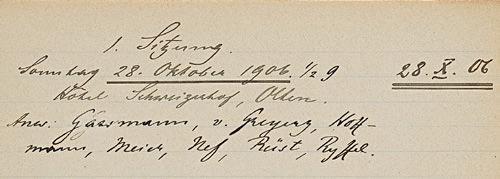 1. Sitzung.
Sonntag 28. Oktober 1906. 1/2 9 28. X. 06
Hotel Schweizerhof, Olten.
Anw: Gassmann, v. Greyerz, Hoff-
mann, Meier, Nef, Rüst, Ryffel.